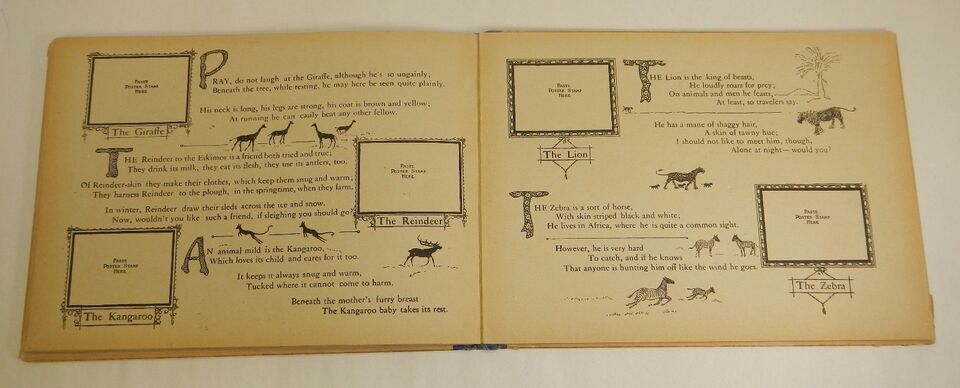 PASTE
POSTER STAMP
HERE
The Giraffe
PRAY, do not laugh at the Giraffe, although he's so ungainly;
Beneath the tree, while resting, he may here be seen quite plainly.
His neck is long, his legs are strong, his coat is brown and yellow;
At running he can easily beat any other fellow.
THE Reindeer to the Eskimos is a friend both tried and true;
They drink its milk, they eat its flesh, they use its antlers, too.
Of Reindeer-skin they make their clothes, which keep them snug and warm;
They harness Reindeer to the plough, in the springtime, when they farm.
In winter, Reindeer draw their sleds across the ice and snow.
Now, wouldn't you like such a friend, if sleighing you should go?
PASTE
POSTER STAMP
HERE
The Reindeer
PASTE
POSTER STAMP
HERE
The Kangaroo
AN animal mild is the Kangaroo,
Which loves its child and cares for it too.
It keeps it always snug and warm,
Tucked where it cannot come to harm.
Beneath the mother's furry breast
The Kangaroo baby takes its rest.
PASTE
POSTER STAMP
HERE
The Lion
THE Lion is the king of beasts,
He loudly roars for prey;
On animals and men he feasts,
At least, so travelers say.
He has a mane of shaggy hair,
A skin of tawny hue;
I should not like to meet him, though,
Alone at night—would you?
THE Zebra is a sort of horse,
With skin striped black and white;
He lives in Africa, where he is quite a common sight.
However, he is very hard
To catch, and if he knows
That anyone is hunting him off like the wind he goes.
PASTE
POSTER STAMP
HERE
The Zebra